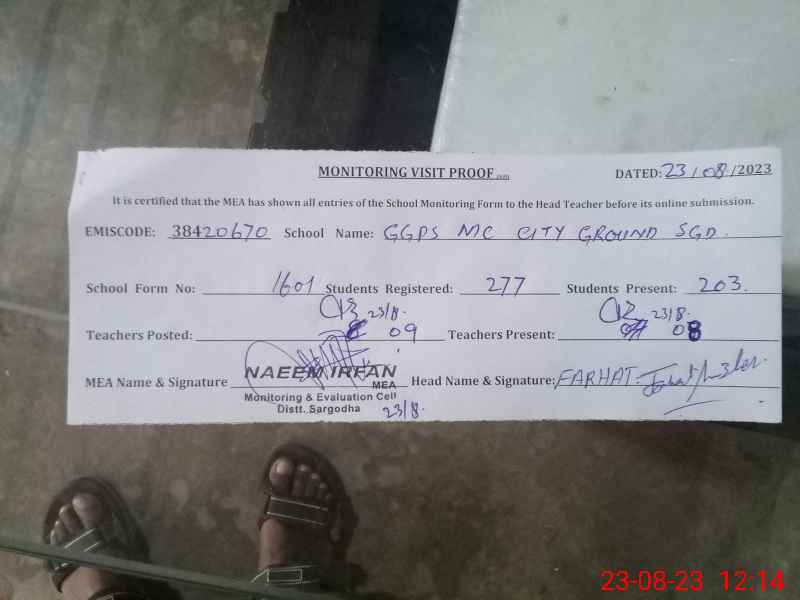 MONITORING VISIT PROOF DATED: 23/08/2023
It is certified that the MEA has shown all entries of the School Monitoring Form to the Head Teacher before its online submission.
EMISCODE: 38420670 School Name: GGPS MC CITY GROUND SGD.
School Form No: 1601 Students Registered: 277 Students Present: 203.
23/8. 23/8.
Teachers Posted: 09 Teachers Present: 08
MEA Name & Signature NAEEM IRFAN Head Name & Signature: FARHAT.
MEA
Monitoring & Evaluation Cell
Distt. Sargodha 23/8.
23-08-23 12:14